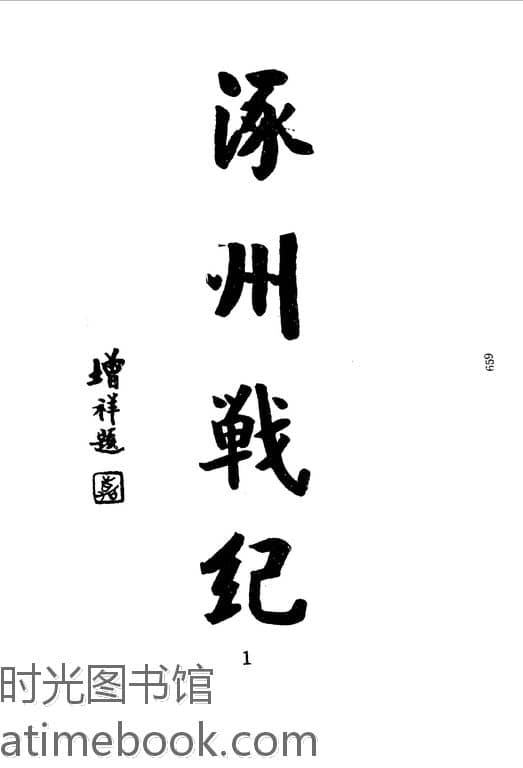 涿州戦纪
增祥题
659
1
时光图书馆
atimebook.com